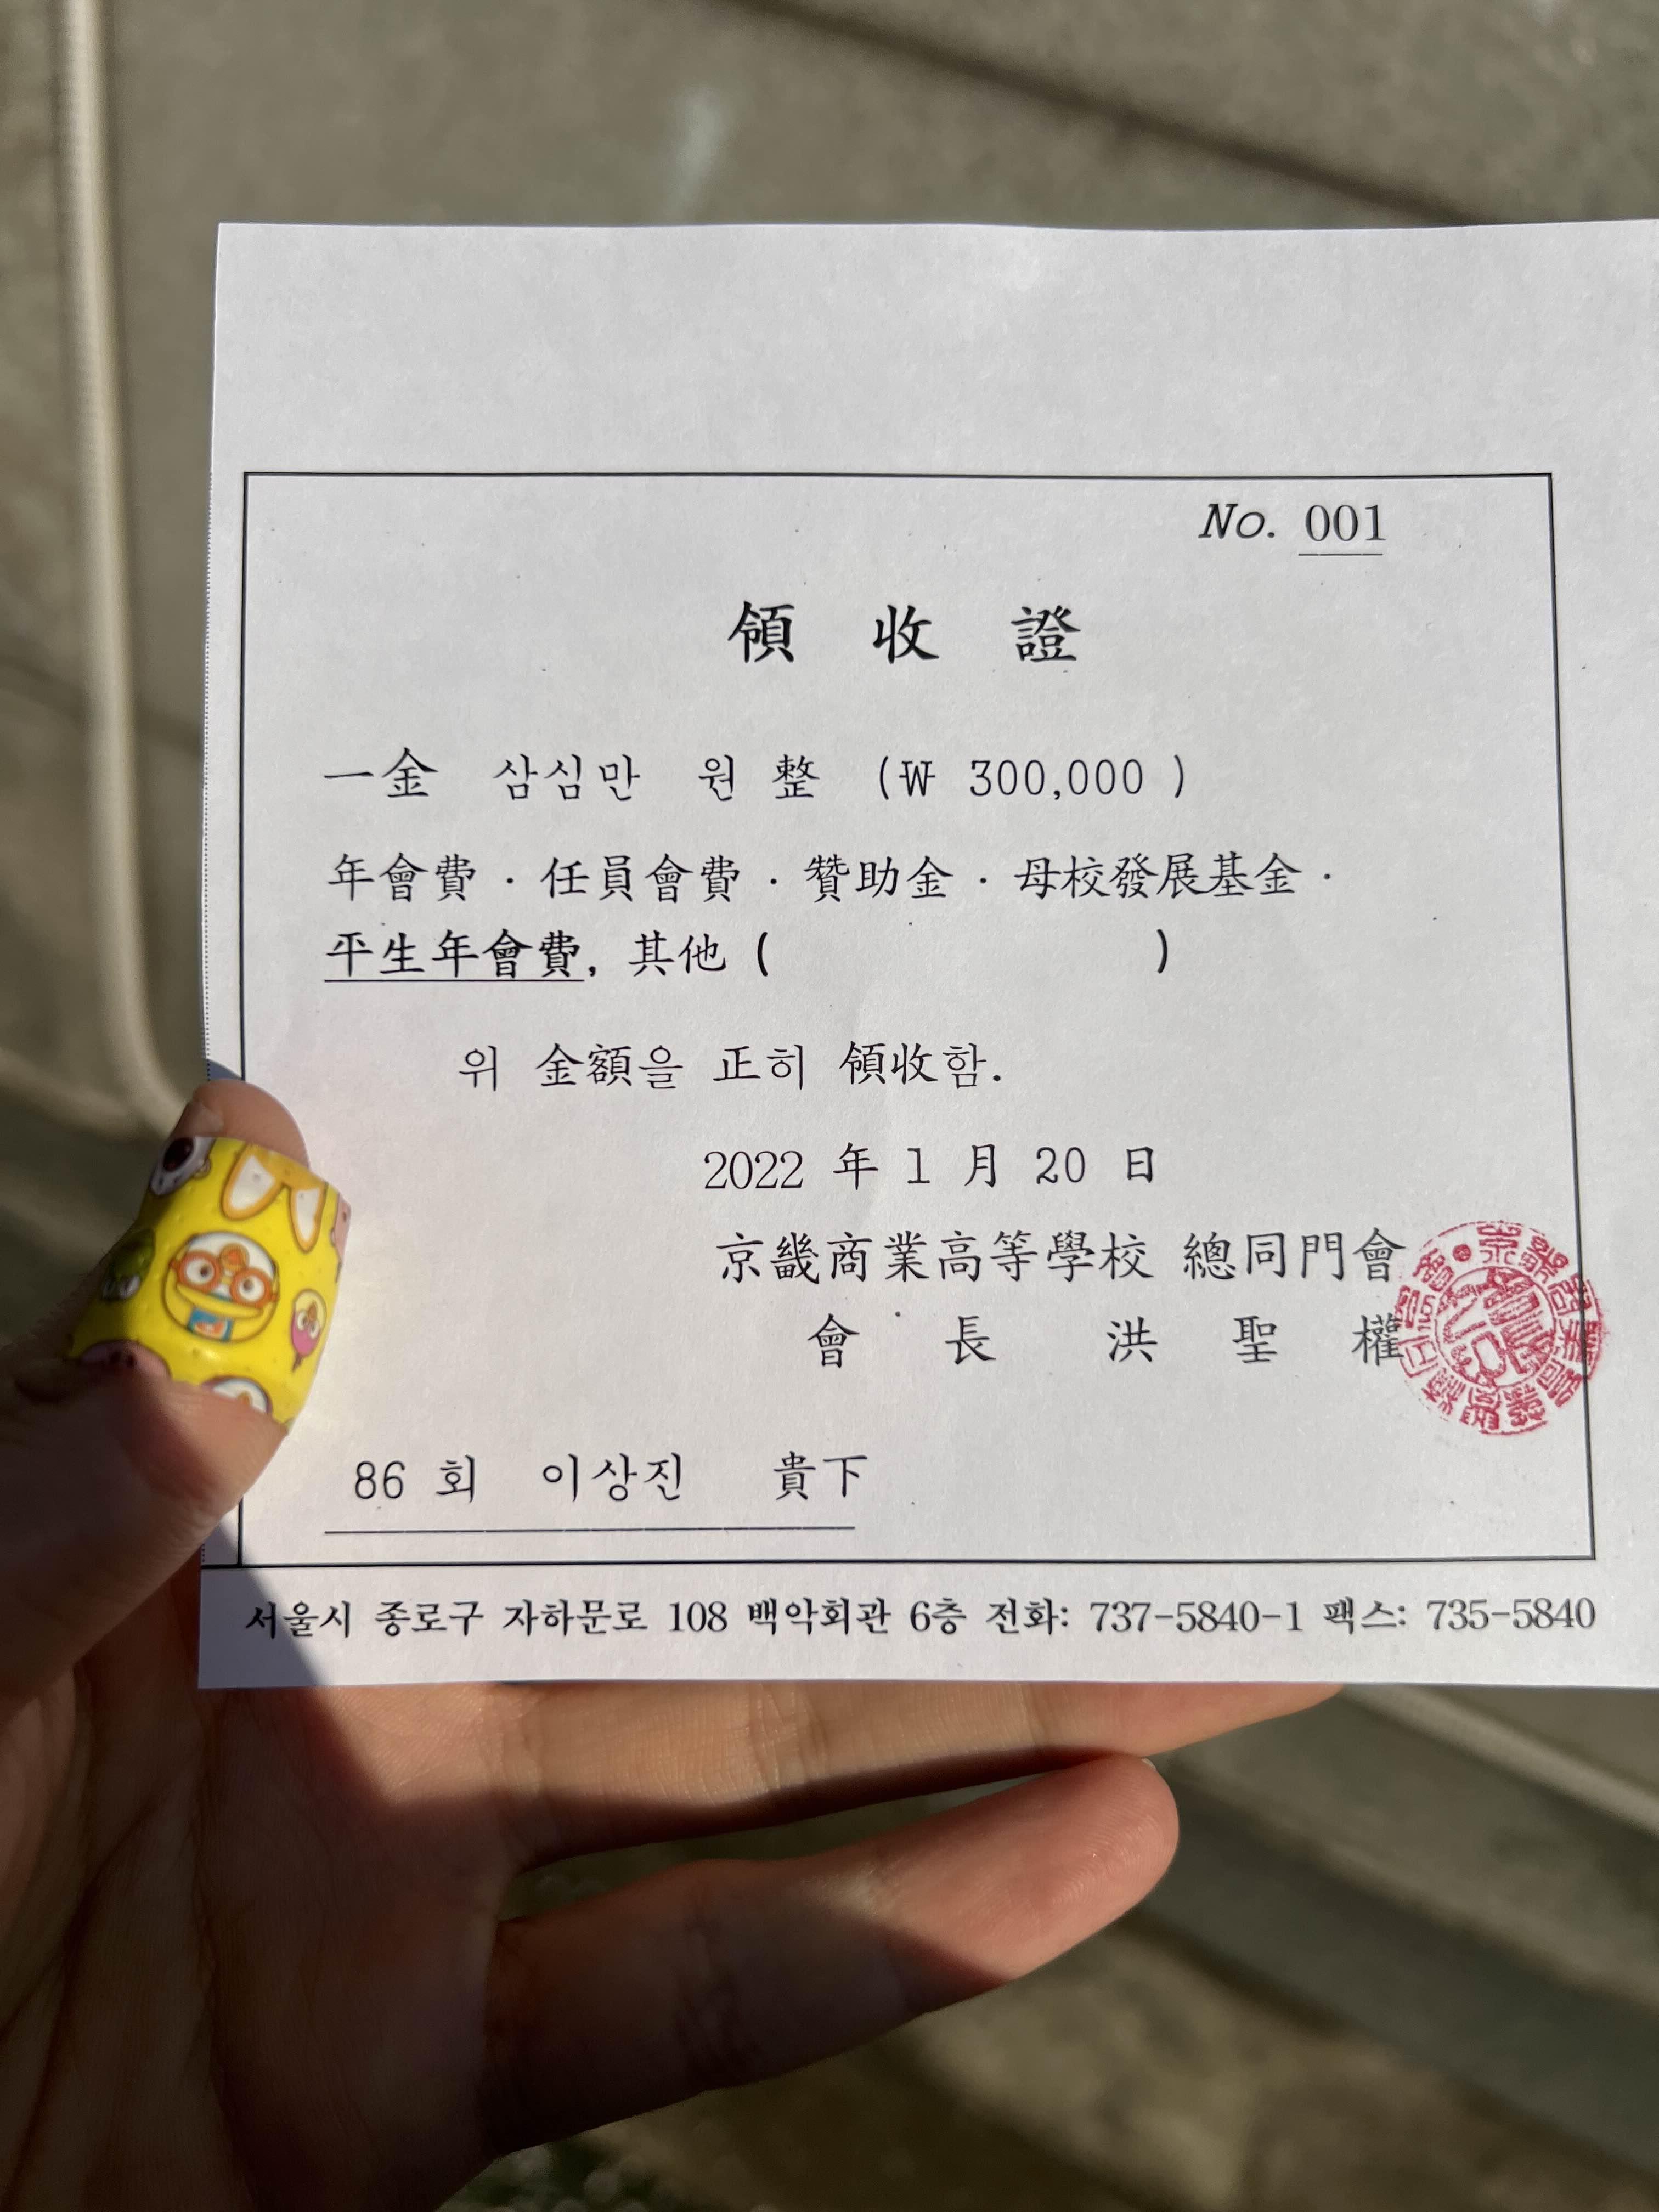 No. 001
領 收 證
一金 삼심만 원 整 (₩ 300,000 )
年會費 · 任員會費 · 贊助金 · 母校發展基金 ·
平生年會費, 其他 ( )
위 金額을 正히 領收함.
2022 年 1 月 20 日
京畿商業高等學校 總同門會
會 長 洪 聖 權
86 회 이상진 貴下
서울시 종로구 자하문로 108 백악회관 6층 전화: 737-5840-1 팩스: 735-5840